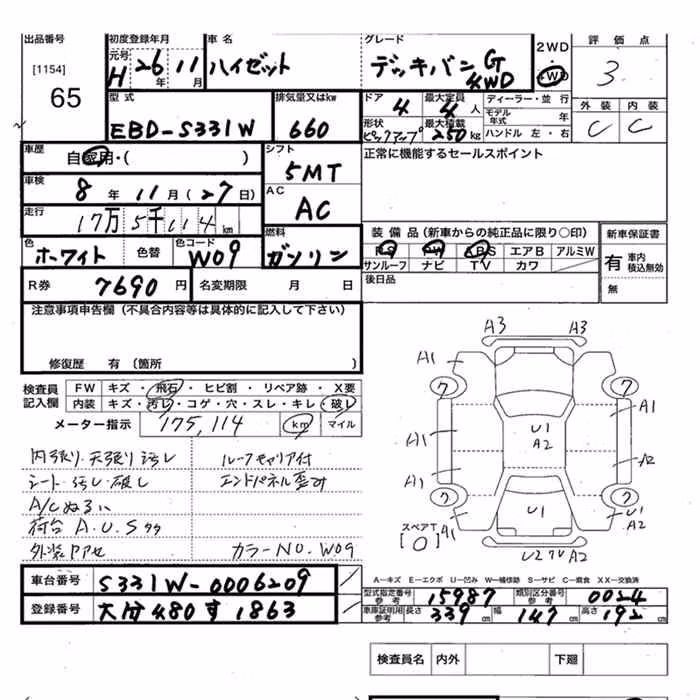 出品番号 初度登録年月 車名 グレード 2WD 評価点
[1154] 元号 H 26年 11月 ハイゼット デッキバン G 4WD 4WD 3
65 型式 排気量又はkw ドア 4 最大定員 4人 ディーラー・並行 外装 内装
EBD-S331W 660 形状 ピックアップ 最大積載 250kg モデル年式 年 C C
ハンドル 左・右
車歴 自家用・( ) シフト 正常に機能するセールスポイント
車検 8年 11月 (27日) 5MT
走行 17万5千114km AC AC
装備品 (新車からの純正品に限り○印) 新車保証書
色 ホワイト 色替 色コード W09 燃料 ガソリン PS PW ABS エアB アルミW 有 車内積込無効
サンルーフ ナビ TV カワ
R券 7690円 名変期限 月 日 後日品 無
注意事項申告欄 (不具合内容等は具体的に記入して下さい)
修復歴 有 (箇所 )
検査員記入欄 FW キズ・飛石・ヒビ割・リペア跡・X要
内装 キズ・汚レ・コゲ・穴・スレ・キレ・破レ
メーター指示 175,114 km マイル
内張り・天張り汚レ ルーフキャリア付
シート汚レ・破レ
A/Cぬるい
荷台 A.U.S
カラーNo. W09
A3 A3
A1
7 7
A1
U1
A2
A1
A2
A1
7 7
U1
U1
A2
A1
スペアT
[0]
U2 A2
車台番号 S331W-0006209
登録番号 480 1863
A―キズ E―エクボ U―凹み W―補修跡 S―サビ C―腐食 XX―交換済
型式指定番号 参考 15987 類別区分番号 参考 0024
車庫証明用 参考 長さ 339cm 幅 147cm 高さ 192cm
検査員名 内外 下廻